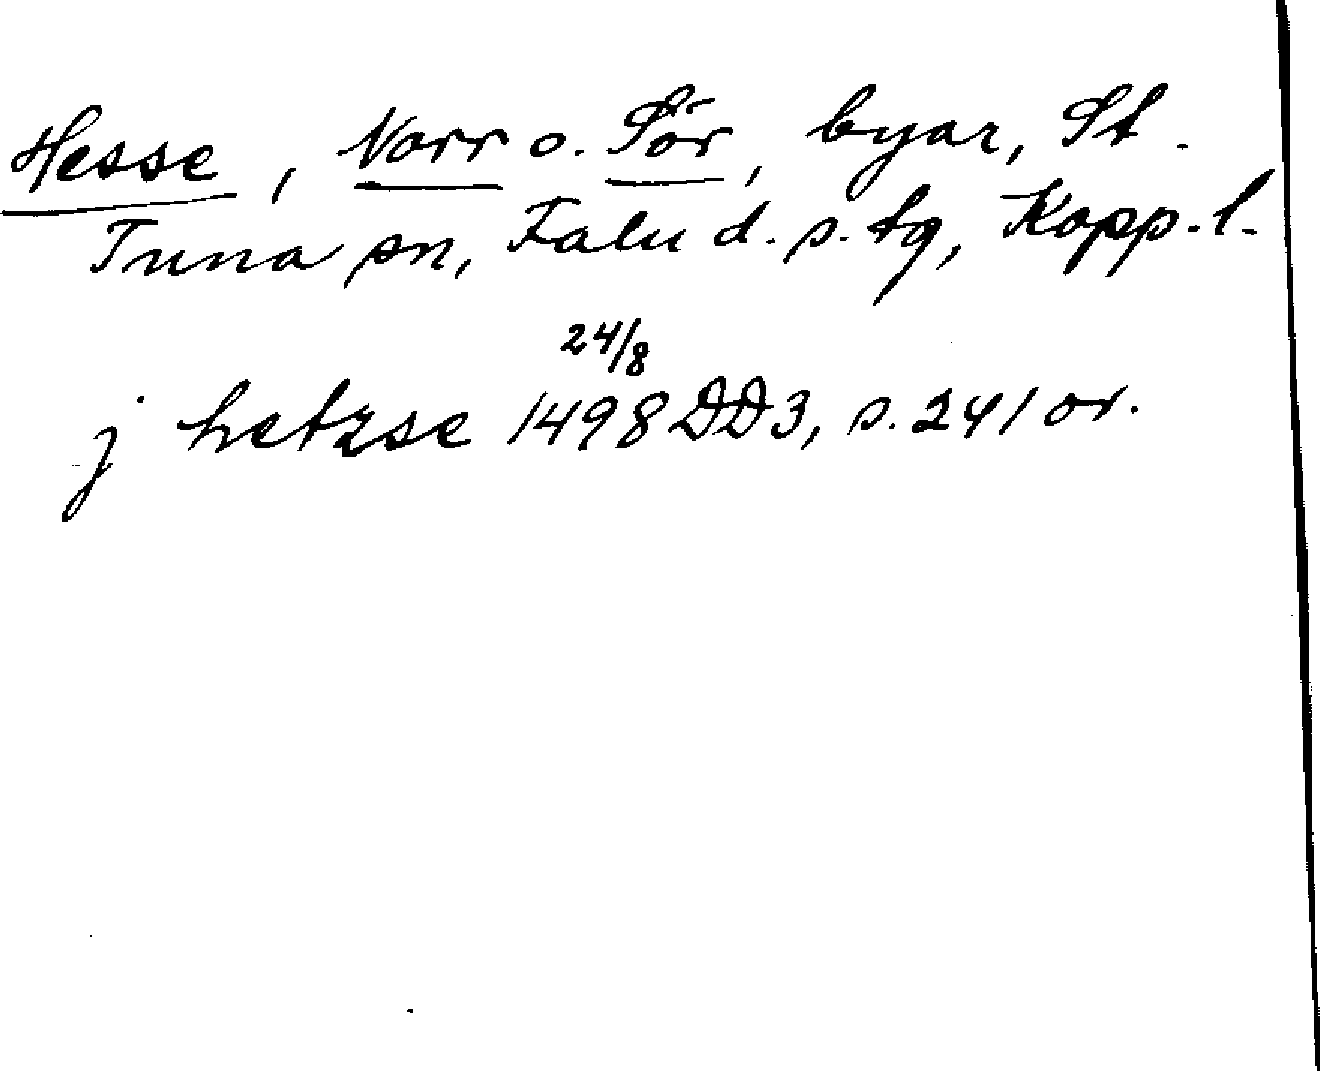 Hesse, Norr o. Sör, byar, St.
Tuna sn, Falu d. s. tg, Kopp. l.
24/8
j hetzse 1498 DD3, s. 241 or.